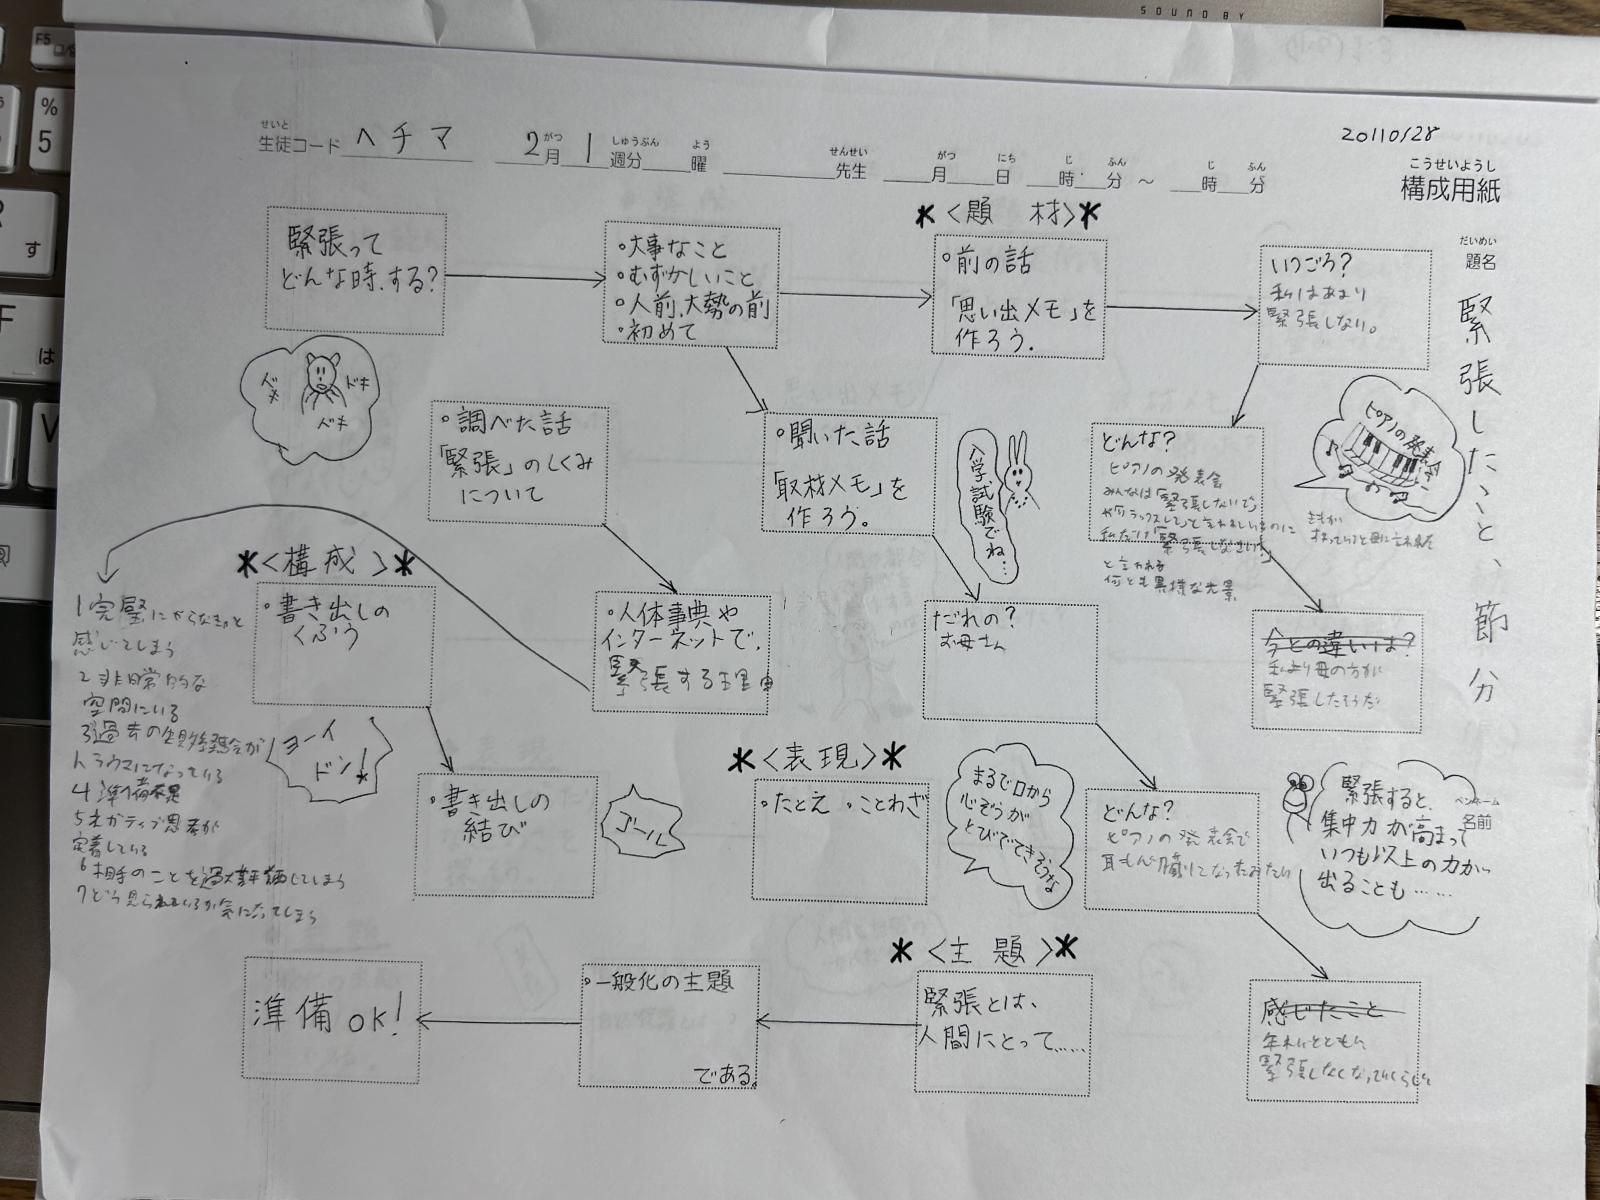 SOUND BY
F5
%
5
す
は
20110128
せいと
生徒コード ヘチマ 2月 1週分 曜 先生 月 日 時 分 ~ 時 分
がつ しゅうぶん よう せんせい がつ にち じ ふん じ ふん
こうせいようし
構成用紙
だいめい
題名
緊張したこと、節分
ペンネーム
名前
緊張って
どんな時、する?
・大事なこと
・むずかしいこと
・人前、大勢の前
・初めて
*<題 材>*
・前の話
「思い出メモ」を
作ろう.
いつごろ?
私はあまり
緊張しない。
ドキ
ドキ
ドキ
・調べた話
「緊張」のしくみ
について
・聞いた話
「取材メモ」を
作ろう。
入学試験でね…
どんな?
ピアノの発表会
みんなは「緊張しないで」
やリラックスしてと言われているのに
私だけ「緊張しなさい!」
と言われる
何とも異様な光景
ピアノの発表会
*<構成>*
・書き出しの
くふう
・人体事典や
インターネットで、
緊張する理由
だれの?
お母さん
今との違いは?
私より母の方が
緊張したそうだ
1完璧にやらなきゃと
感じてしまう
2非日常的な
空間にいる
3過去の失敗経験が
トラウマになっている
4準備不足
5ネガティブ思考が
定着している
6相手のことを過大評価してしまう
7どう見られているか気になってしまう
ヨーイ
ドン!
・書き出しの
結び
ゴール
*<表現>*
・たとえ ・ことわざ
まるで口から
心ぞうが
とびでてきそうな
どんな?
ピアノの発表会で
緊張すると、
集中力が高まって
いつも以上の力が
出ることも……
準備OK!
・一般化の主題
である。
*<主 題>*
緊張とは、
人間にとって……
感じたこと
年れいとともに
緊張しなくなっていくらしい